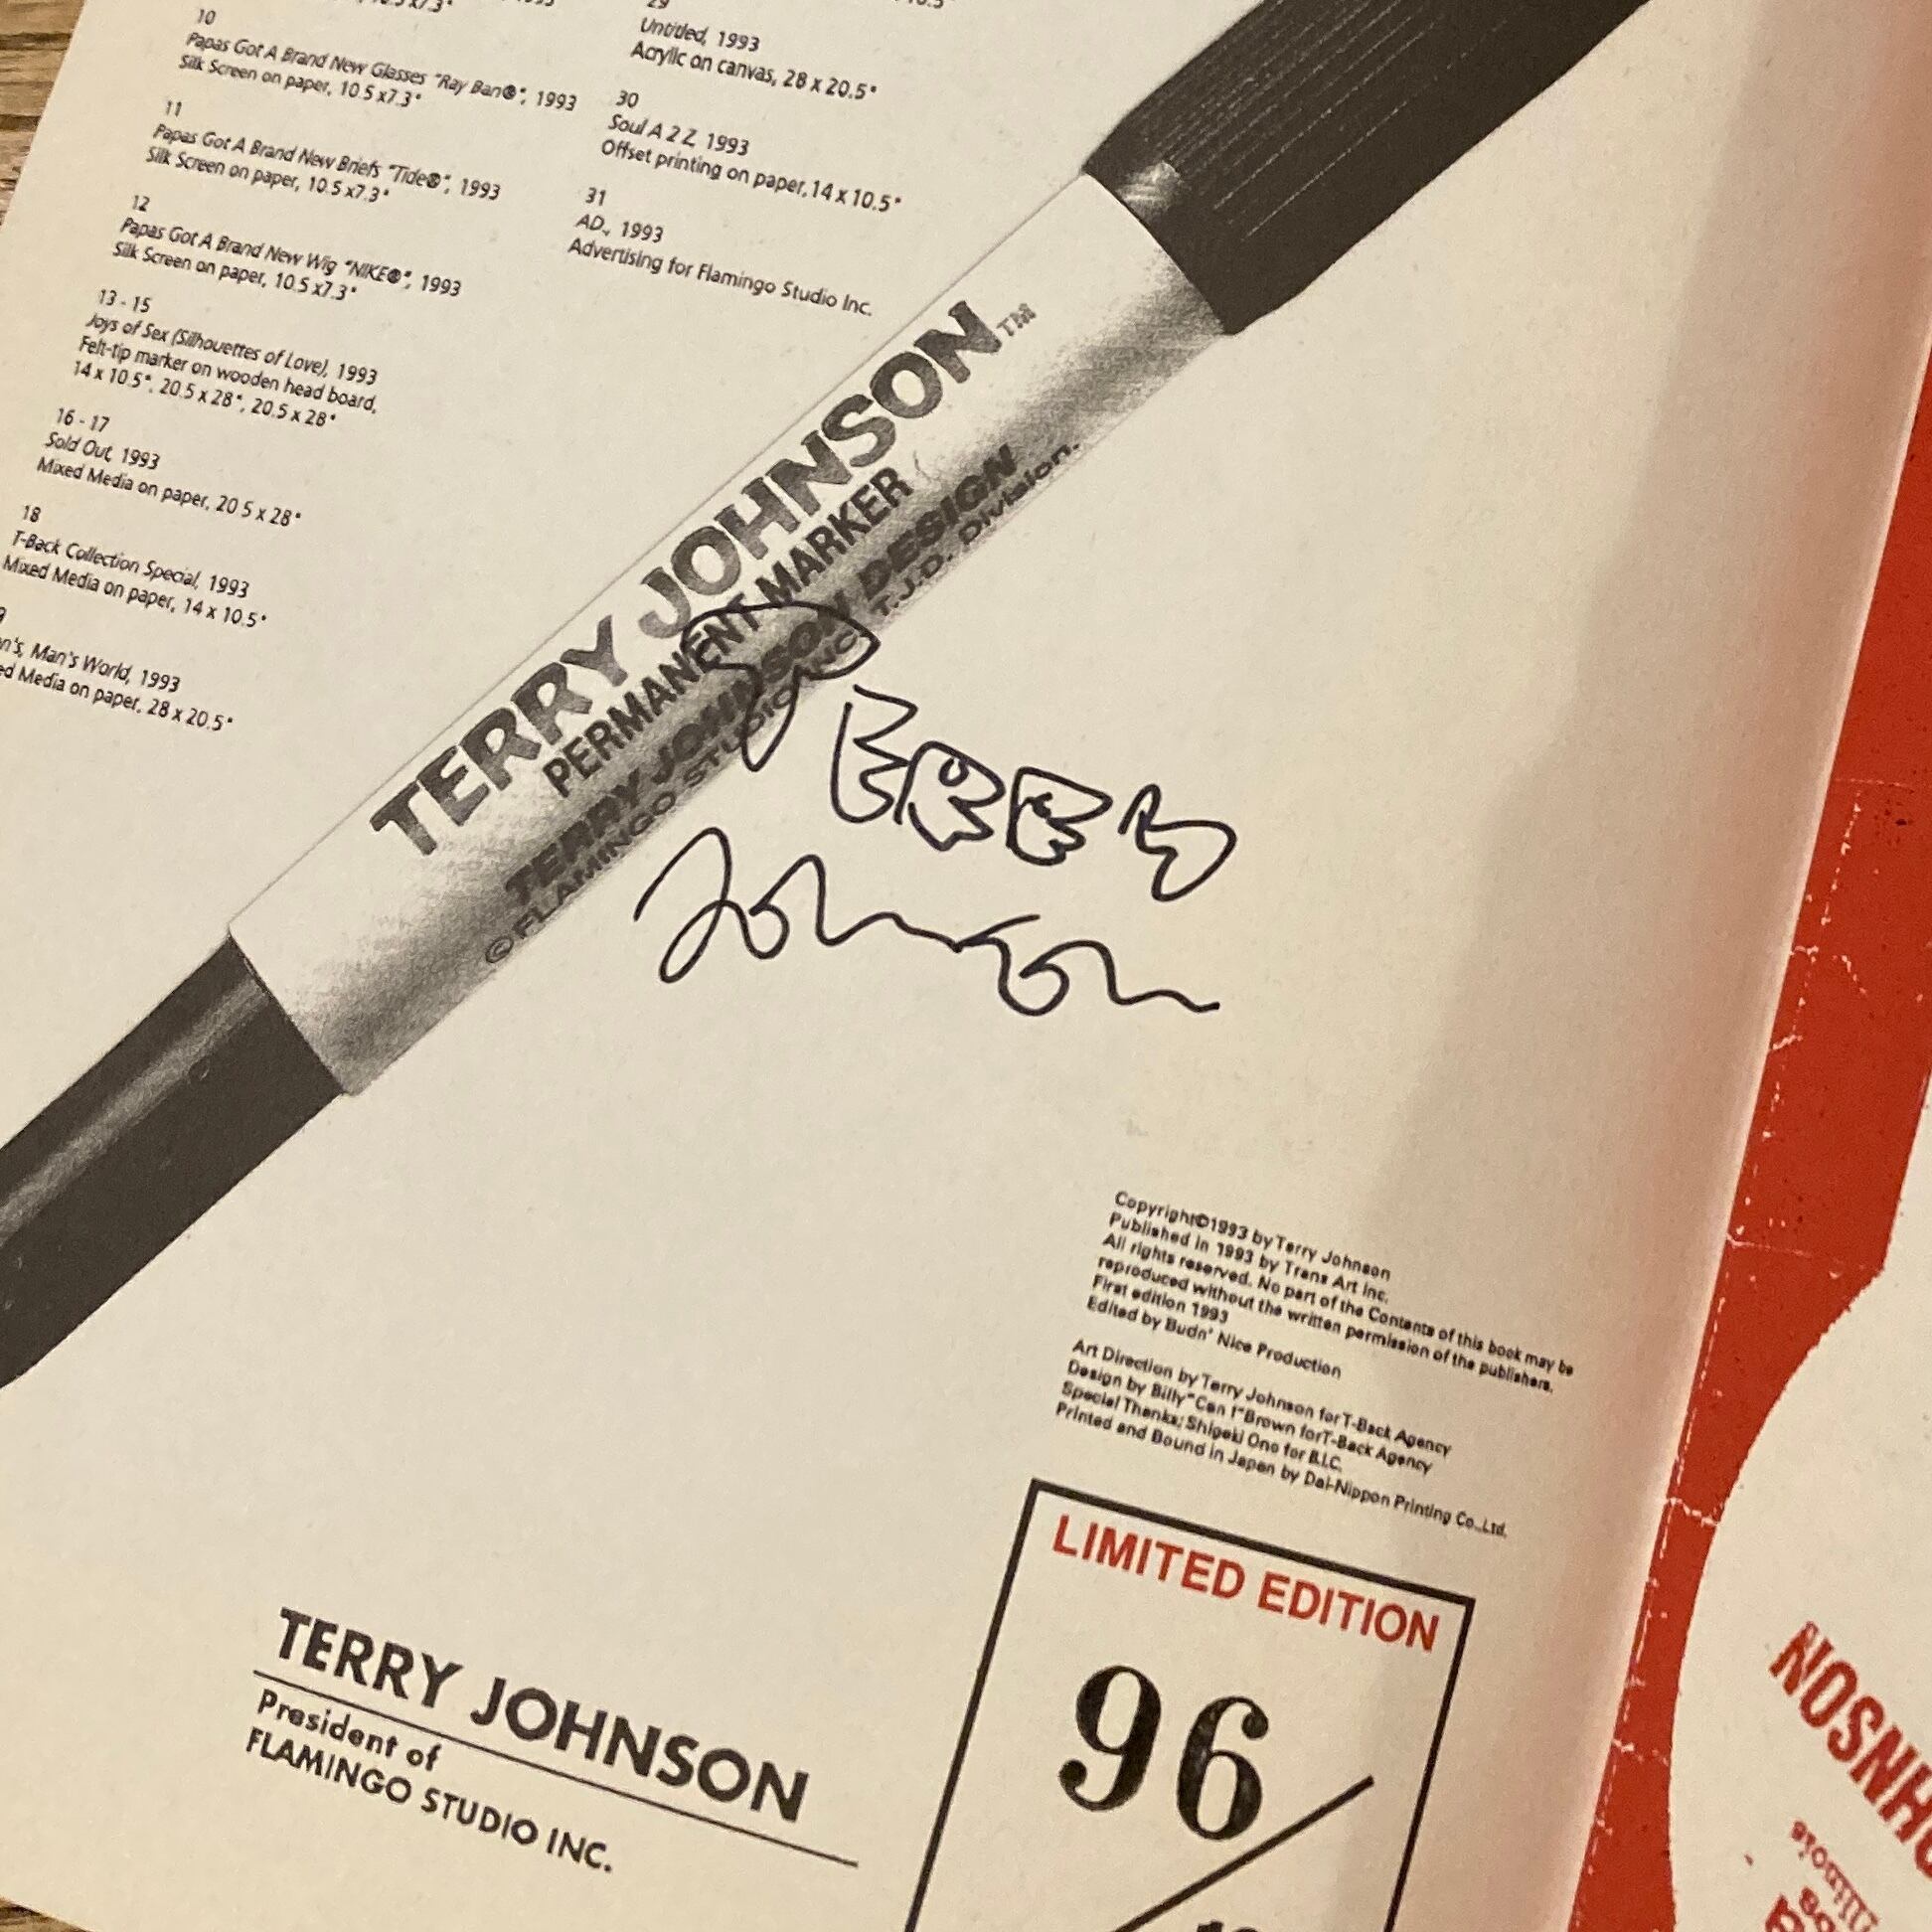 10
Papas Got A Brand New Glasses "Ray Ban®", 1993
Silk Screen on paper, 10.5 x7.3"
11
Papas Got A Brand New Briefs "Tide®", 1993
Silk Screen on paper, 10.5 x7.3"
12
Papas Got A Brand New Wig "NIKE®", 1993
Silk Screen on paper, 10.5 x7.3"
13 - 15
Joys of Sex (Silhouettes of Love), 1993
Felt-tip marker on wooden head board,
14 x 10.5", 20.5 x 28", 20.5 x 28"
16 - 17
Sold Out, 1993
Mixed Media on paper, 20 5 x 28"
18
T-Back Collection Special, 1993
Mixed Media on paper, 14 x 10.5"
Man's World, 1993
Media on paper, 28 x 20.5"
29
Untitled, 1993
Acrylic on canvas, 28 x 20.5"
30
Soul A 2 Z, 1993
Offset printing on paper, 14 x 10.5"
31
AD., 1993
Advertising for Flamingo Studio Inc.
TERRY JOHNSON™
PERMANENT MARKER
TERRY JOHNSON DESIGN
©FLAMINGO STUDIO INC. T.J.D. Division.
TERRY
Johnson
Copyright©1993 by Terry Johnson
Published in 1993 by Trans Art Inc.
All rights reserved. No part of the Contents of this book may be
reproduced without the written permission of the publishers.
First edition 1993
Edited by Budn' Nice Production
Art Direction by Terry Johnson for T-Back Agency
Design by Billy "Can I" Brown for T-Back Agency
Special Thanks; Shigeki Ono for B.I.C.
Printed and Bound in Japan by Dai-Nippon Printing Co.,Ltd.
LIMITED EDITION
96/
TERRY JOHNSON
President of
FLAMINGO STUDIO INC.
HNSON
Illinois